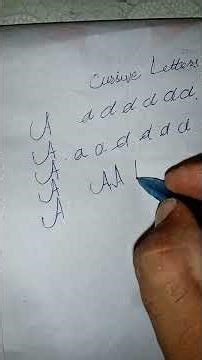 Cursive Letters
A a d d d d d
A a a d d d d
A
A A A
A